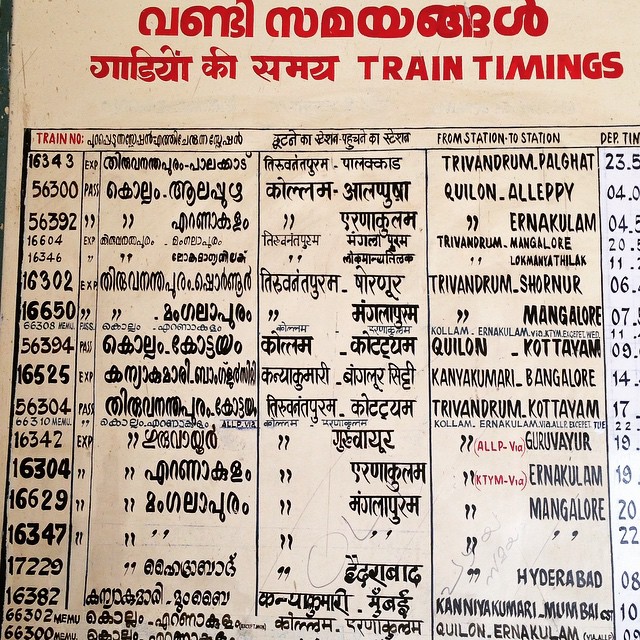 വണ്ടി സമയങ്ങൾ
गाडियों की समय TRAIN TIMINGS
TRAIN NO: छूटने का स्टेशन-पहुचने का स्टेशन FROM STATION-TO STATION DEP. TIM
16343 EXP തിരുവനന്തപുരം-പാലക്കാട് तिरुवनंतपुरम - पालक्काड TRIVANDRUM-PALGHAT 23.5
56300 PASS കൊല്ലം-ആലപ്പുഴ कोल्लम- आलप्पुषा QUILON-ALLEPPY 04.0
56392 ,, ,, എറണാകുളം ,, एरणाकुलम ,, ERNAKULAM 04.5
16604 EXP തിരുവനന്തപുരം - മംഗലാപുരം तिरुवनंतपुरम मंगलापुरम TRIVANDRUM-MANGALORE 20.
16346 ,, ,, ലോകമാന്യതിലക് ,, लोकमान्यतिलक ,, LOKMANYATHILAK 11
16302 EXP തിരുവനന്തപുരം-ഷൊർണ്ണൂർ तिरुवनंतपुरम - षोरणूर TRIVANDRUM-SHORNUR 06.
16650 ,, ,, - മംഗലാപുരം ,, मंगलापुरम ,, MANGALORE 07.
66308 MEMU. PASS. കൊല്ലം - എറണാകുളം कोल्लम एरणाकुलम KOLLAM-ERNAKULAM.VIA.KTYM.EXCEPET.WED. 11
56394 PASS കൊല്ലം-കോട്ടയം कोल्लम - कोट्टयम QUILON - KOTTAYAM 09.
16525 EXP കന്യാകുമാരി-ബാംഗ്ളൂർസിറ്റി कन्याकुमारी - बांगलूर सिट्टी KANYAKUMARI-BANGALORE 14.
56304 PASS തിരുവനന്തപുരം-കോട്ടയം तिरुवनंतपुरम - कोट्टयम TRIVANDRUM-KOTTAYAM 17
66310 MEMU ,, കൊല്ലം-എറണാകുളം ALLP.VIA कोल्लम एरणाकुलम KOLLAM. ERNAKULAM.VIA.ALLP.EXCEPT. TUE 22
16342 EXP ,, ഗുരുവായൂർ ,, गुरुवायूर ,, (ALLP-Via) GURUVAYUR 19.
16304 ,, ,, എറണാകുളം ,, एरणाकुलम ,, (KTYM-Via) ERNAKULAM 19.
16629 ,, ,, മംഗലാപുരം ,, मंगलापुरम ,, MANGALORE 20
16347 ,, ,, ,, ,, ,, ,, ,, 22
17229 ,, ഹൈദ്രാബാദ് ,, हैदराबाद ,, HYDERABAD 08
16382 കന്യാകുമാരി-മുംബൈ कन्याकुमारी - मुँबई KANNIYAKUMARI-MUMBAI CST 10
66302 MEMU കൊല്ലം - എറണാകുളം कोल्लम - एरणाकुलम QUILON-ERNAKULAM 09
66300 MEMU ,,